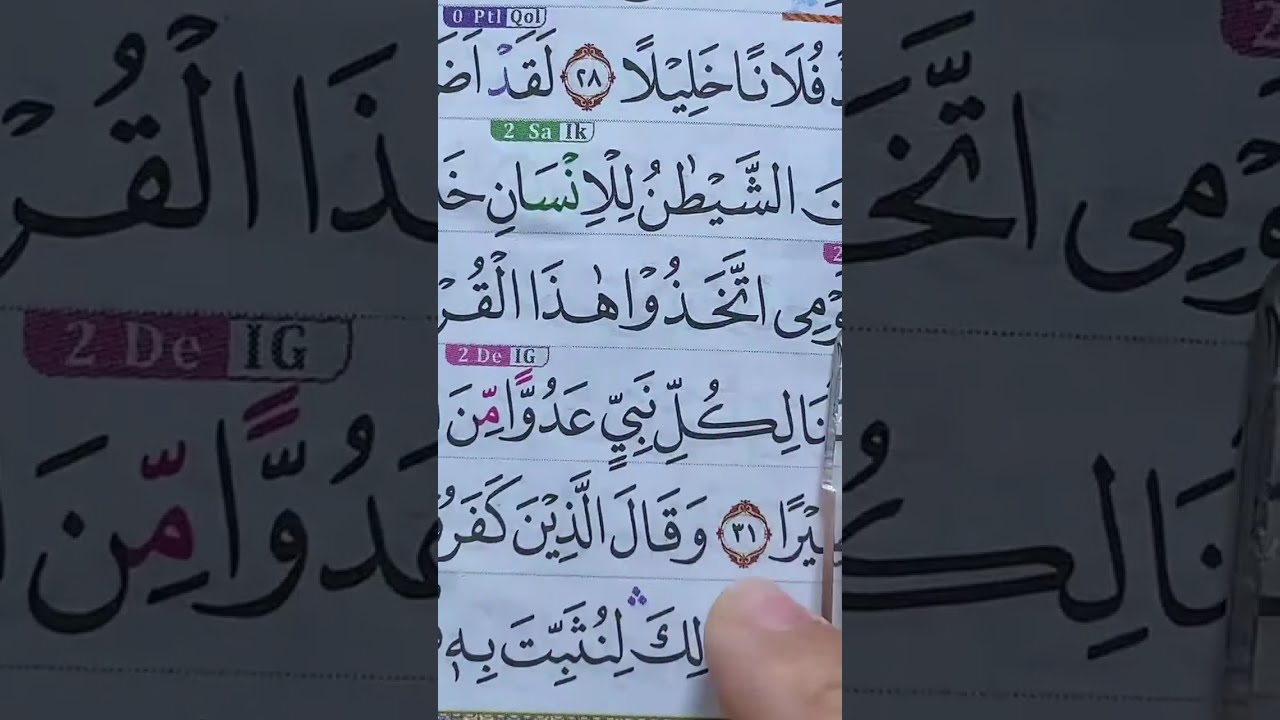 0 Ptl Qol
فُلَانًا خَلِيْلًا ٢٨ لَقَدْ اَضَ
2 Sa Ik
نَ الشَّيْطٰنُ لِلْاِنْسَانِ خَ
وْمِى اتَّخَذُوْا هٰذَا الْقُرْ
2 De IG
نَا لِكُلِّ نَبِيٍّ عَدُوًّا مِّنَ
يْرًا ٣١ وَقَالَ الَّذِيْنَ كَفَرُ
لِكَ ۛ لِنُثَبِّتَ بِهٖ